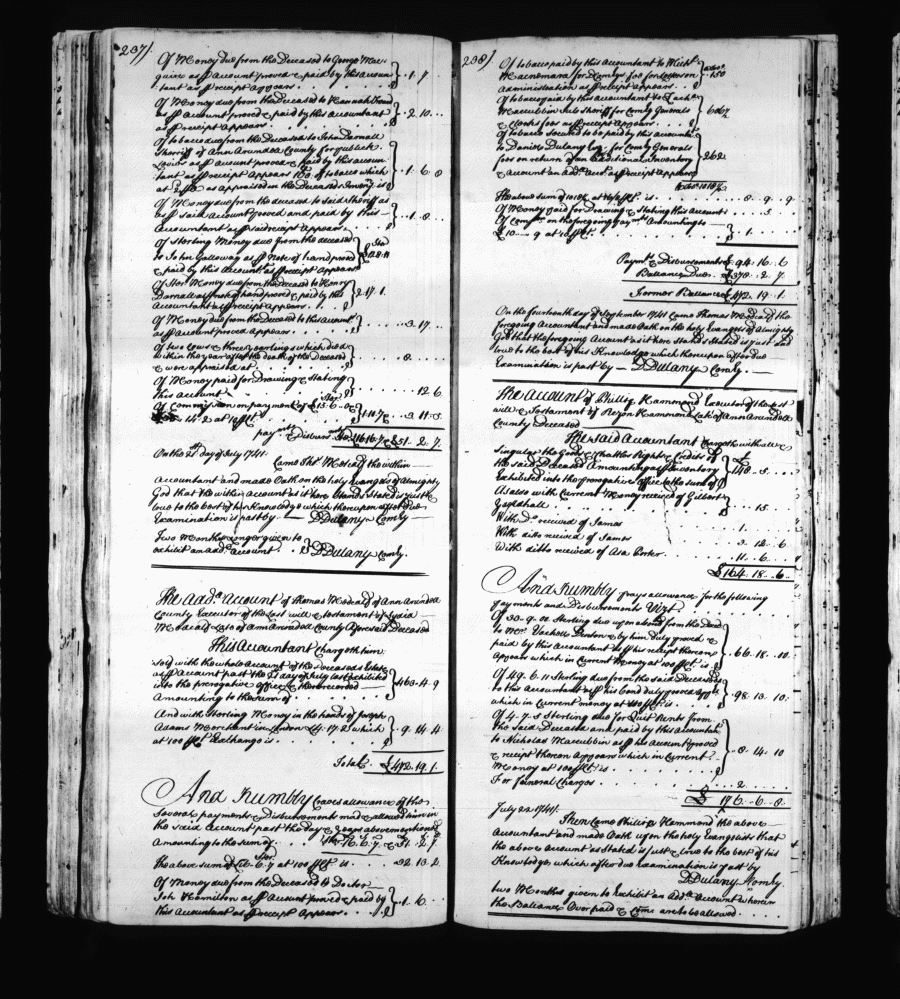 237/.
Of Money due from the Deceased to George Mac-
quire as pr Account proved & paid by this Accoun
tant as pr receipt appears . . . . . . 1 . 7 . .
Of Money due from the Deceased to Hannah
as pr Account proved & paid by this Accountant
as pr receipt appears . . . . . 2 . 10 . . .
Of tobacco due from the Deceased to John Darnall
Sherriff of Ann Arundel County for publick
Levies as pr Account proved & paid by this accoun
tant as pr receipt Appears of tobacco which
at as appraised in the Deceaseds Inventy is . . 1 . 6 . 8
Of Money due from the deceased to said Sherriff as
pr said Account proved and paid by this
Accountant as pr said receipt Appears . . . 1 . 8 . .
Of Sterling Money due from the deceased
to John Galloway as pr Note of hand proved
& paid by this Accountant as pr receipt Appears
Of Ster Money due from the Deceased to Henry
Darnall as pr note of hand proved & paid by this
Accountant as pr receipt Appears . . . 2 . 17 . 1 .
Of Money due from the Deceased to this Accountant
as pr Account proved Appears . . . . . 3 . 17 . . .
Of two cows & three yearlings which died
within the year after the death of the Deceased
& were appraised at . . . . . 8 . . .
Of Money paid for Drawing & Stating
this Account . . . . . . 12 . 6
Of Commission on payment of £15 . 6 . 0
14 . 2 at 10 pr Ct . . 1 . 10 . 7 . . 3 . 11 . 5
paymts & Disbursmts £16 . 16 . 7 & £51 . 2 . 7
On the 21st day of July 1741
Came Thos Metcalf the within
Accountant and made Oath on the holy Evangels of Almighty
God that the within Account as it here stands Stated is just &
true to the best of his Knowledge which thereupon after due
Examination is past by. — D Dulany Comry —
Two Months longer given to
exhibit an add. Account. . D Dulany Comry.
The Add. Account of Thomas Metcalf of Ann Arundell
County Executor of the Last will & testament of Lydia
Metcalf Late of Ann Arundell County Aforesaid Deceased
This Accountant Chargeth him
self with the whole Account of the deceaseds Estate
as pr Account past the 21 day of July last Exhibited
into the prerogative office & there recorded —
Amounting to the sum of . . . . . 463 . 4 . 9
And with Sterling Money in the hands of Joseph
Adams Merchant in London £4 . 17 . 2 which
at 100 pr Ct Exchange is . . . . . 9 . 14 . 4
Total . £472 . 19 . 1 .
And Humbly Craves allowance of the
several payments & Disbursements made & allowed him in
the said Account past the day & year abovementioned
Amounting to the sum of . . Ster 16 . 6 . 7 . & 51 . 2 . 7
the above sum of Ster 16 . 6 . 7 at 100 pr Ct is . . . 32 . 13 . 2
Of Money due from the Deceased to Doctor
Joh Hamilton as pr Account proved & paid by
this Accountant as pr receipt Appears . . . 1 . 6 . . .
238/
Of tobacco paid by this Accountant to Mich.
Macnemara for Comrys fee for Letters on
Administration as pr receipt appears . . 150
Of tobacco paid by this Accountant to Zach.
Maccubbin Sub Sherriff for Comry General
& Clerks fees as pr receipt Appears . . .
Of tobacco secured to be paid by this accountant
to Daniel Dulany Esq. for Comry Generals
fees on return of an Additional Inventory
& Account an Addl. Acct. as pr receipt Appears
the above sum of at pr Ct. is . . . . . 8 . 9 . 9 .
Of Money paid for Drawing & Stating this Account . . . 5 . .
Of Comssn on the foregoing paymts Amounting to
£10 . . 9 at 10 pr Ct. . . . . . 1 . . .
Paymts & Disbursements £94 . 16 . 6
Ballance Due . £378 . 2 . 7 .
Former Ballance £472 . 19 . 1 .
On the fourteenth day of September 1741 Came Thomas Metcalf the
foregoing Accountant and made Oath on the holy Evangels of Almighty
God that the foregoing Account as it here stands Stated is just and
true to the best of his Knowledge which thereupon after due
Examination is past by — D Dulany Comry. —
The Account of Phillip Hammond Executor of the last
will & Testament of Rezon Hammond Late of Ann Arundell
County Deceased
The said Accountant Chargeth with all &
Singular the Goods & Chattles Rights & Credits of
the said Deceased Amounting as pr Inventory
Exhibited into the prerogative office to the sum of £140 . 5 . . . .
As also with Current Money received of Gilbert
Yealdhall . . . . . . 15 . .
With Do. received of James . . . 1 . . . .
With ditto received of James . . . . 3 . 12 . 6
With ditto received of Asa Porter . . . . 11 . . 6 . .
£164 . 18 . 6 .
And Humbly prays allowance for the following
payments and Disbursements Vizt
Of 30 . 9 . 00 Sterling due upon abond from the Decd.
to Mr Vachell Denton & by him Duly proved &
paid by this Accountant as pr his receipt thereon
Appears which in Current Money at 100 pr Ct is . . 66 . 18 . . 10 .
Of 49 . 6 . 11 Sterling due from the said Deceased
to this Accountant as pr his bond duly proved appears
which in Current money at 100 pr Ct is . . . 98 . 13 . 10 .
Of 4 . 7 . 5 Sterling due for Quit Rents from
the said Deceased and paid by this Accountant
to Nicholas Maccubbin as pr his Account proved
& receipt thereon Appears which in Current
Money at 100 pr Ct is . . . . . 8 . 14 . 10
For Funeral Charges . . . . . 2 . . . .
£176 . . 6 . . 8 .
July 22 1741/.
Then Came Phillip Hammond the above
Accountant and made Oath upon the holy Evangelists that
the above Account as Stated is just & true to the best of his
Knowledge which after due examination is past by
D Dulany Comry
two Months given to Exhibit an Add. Account wherein
the Ballance Over paid & Coms. are to be allowed . . . .